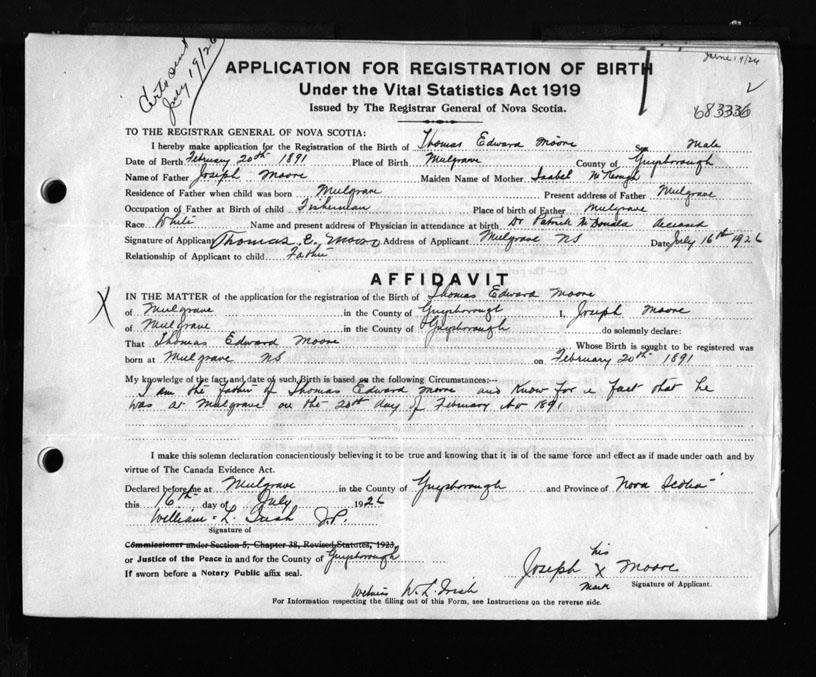 Certs sent
July 19/26
June 19/26
APPLICATION FOR REGISTRATION OF BIRTH
Under the Vital Statistics Act 1919
Issued by The Registrar General of Nova Scotia.
683336
TO THE REGISTRAR GENERAL OF NOVA SCOTIA:
I hereby make application for the Registration of the Birth of Thomas Edward Moore Sex Male
Date of Birth February 20th 1891 Place of Birth Mulgrave County of Guysborough
Name of Father Joseph Moore Maiden Name of Mother Isabel
Residence of Father when child was born Mulgrave Present address of Father Mulgrave
Occupation of Father at Birth of child Fisherman Place of birth of Father Mulgrave
Race White Name and present address of Physician in attendance at birth Dr Patrick McDonald
Signature of Applicant Thomas E. Moore Address of Applicant Mulgrave NS Date July 16th 1926
Relationship of Applicant to child Father
AFFIDAVIT
X
IN THE MATTER of the application for the registration of the Birth of Thomas Edward Moore
of Mulgrave in the County of Guysborough I, Joseph Moore
of Mulgrave in the County of Guysborough do solemnly declare:
That Thomas Edward Moore Whose Birth is sought to be registered was
born at Mulgrave NS on February 20th 1891
My knowledge of the fact and date of such Birth is based on the following Circumstances:—
I am the father of Thomas Edward Moore and Know for a fact that he
was at Mulgrave on the 20th day of February AD 1891
I make this solemn declaration conscientiously believing it to be true and knowing that it is of the same force and effect as if made under oath and by
virtue of The Canada Evidence Act.
Declared before me at Mulgrave in the County of Guysborough and Province of Nova Scotia
this 16th day of July 1926
William L. Irish J.P.
Signature of
Commissioner under Section 5, Chapter 38, Revised Statutes, 1923,
or Justice of the Peace in and for the County of Guysborough
If sworn before a Notary Public affix seal.
his
Joseph X Moore
mark Signature of Applicant.
Witness W. L. Irish
For Information respecting the filling out of this Form, see Instructions on the reverse side.